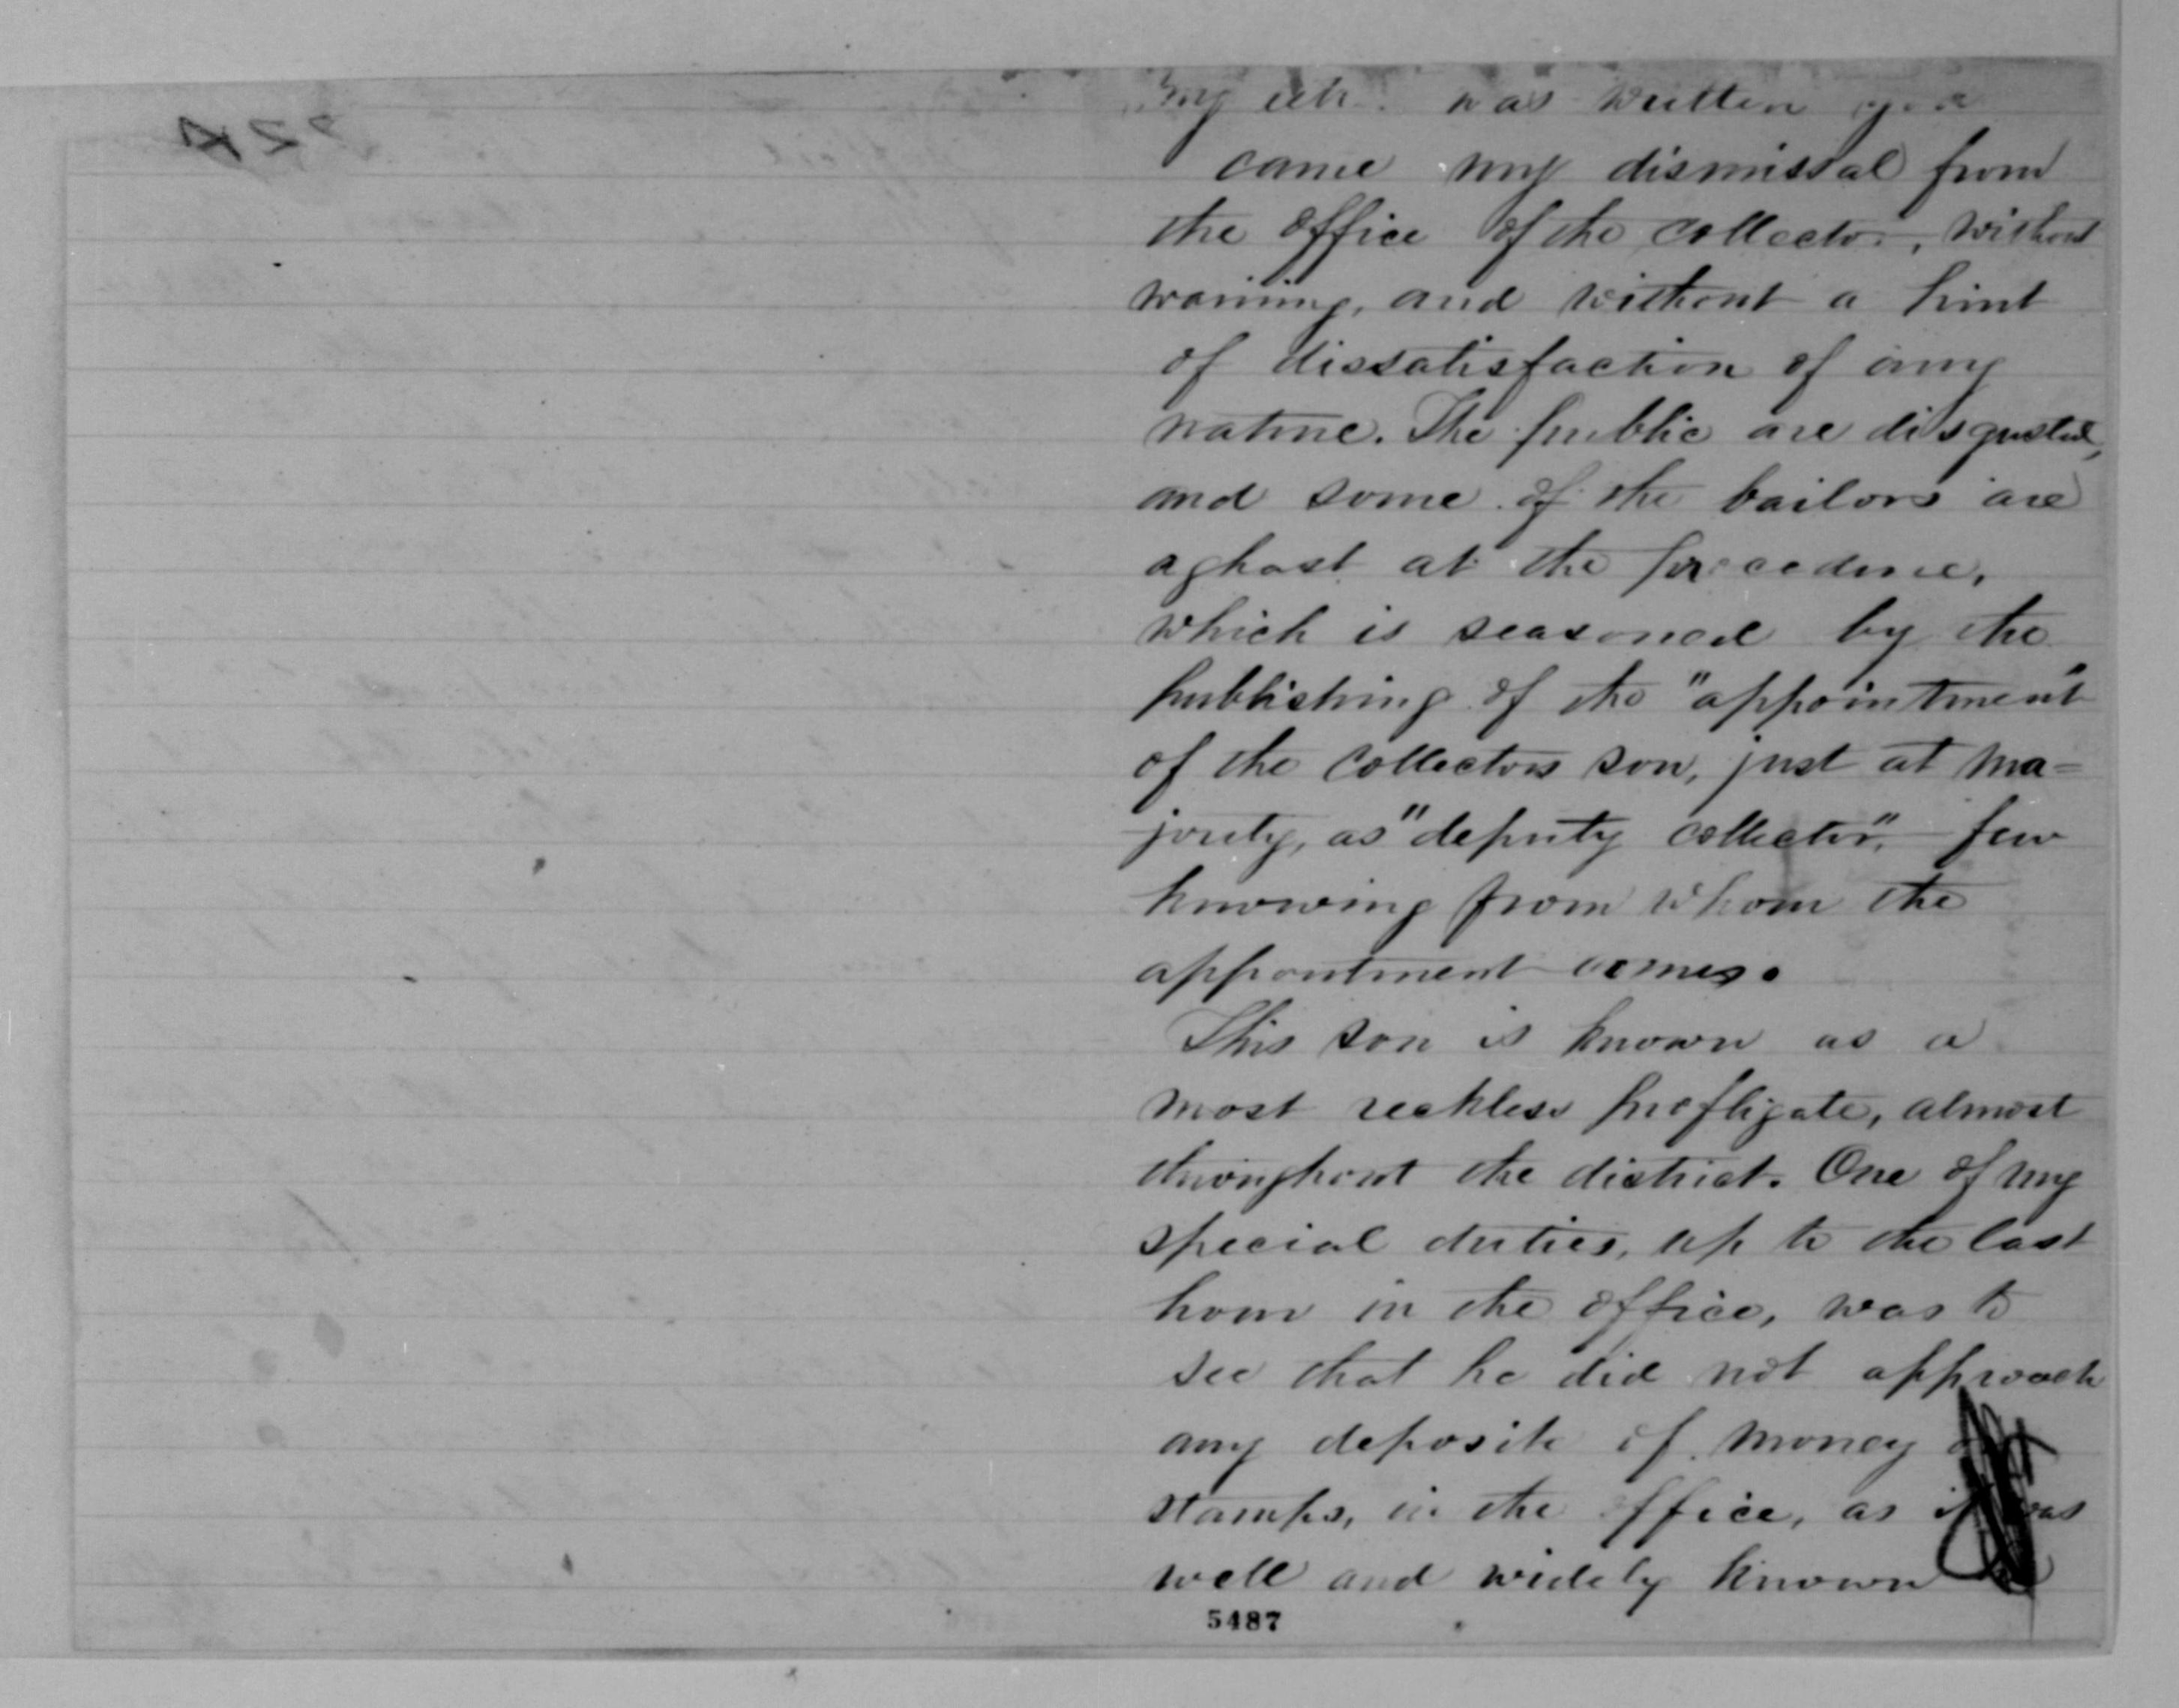 was written
came my dismissal from
the office of the collector, without
warning, and without a hint
of dissatisfaction of any
nature. The public are disgusted,
and some of the bailors are
aghast at the procedure,
which is seasoned by the
publishing of the "appointment"
of the collectors son, just at ma=
jority, as "deputy collector", few
knowing from whom the
appointment comes.
This son is known as a
most reckless profligate, almost
throughout the district. One of my
special duties, up to the last
hour in the office, was to
see that he did not approach
any deposite of money or
stamps, in the office, as it was
well and widely known
5487